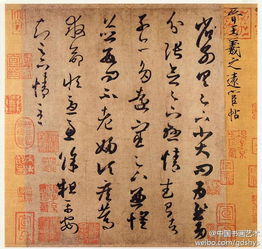 晉王羲之遠宦帖
省別具足下小大問為慰多
分張念足下懸情武昌諸
子亦多遠宦足下兼懷
並數問不老婦頃疾篤
救命恒憂慮餘粗平安
知足下情至
@中国书画艺术